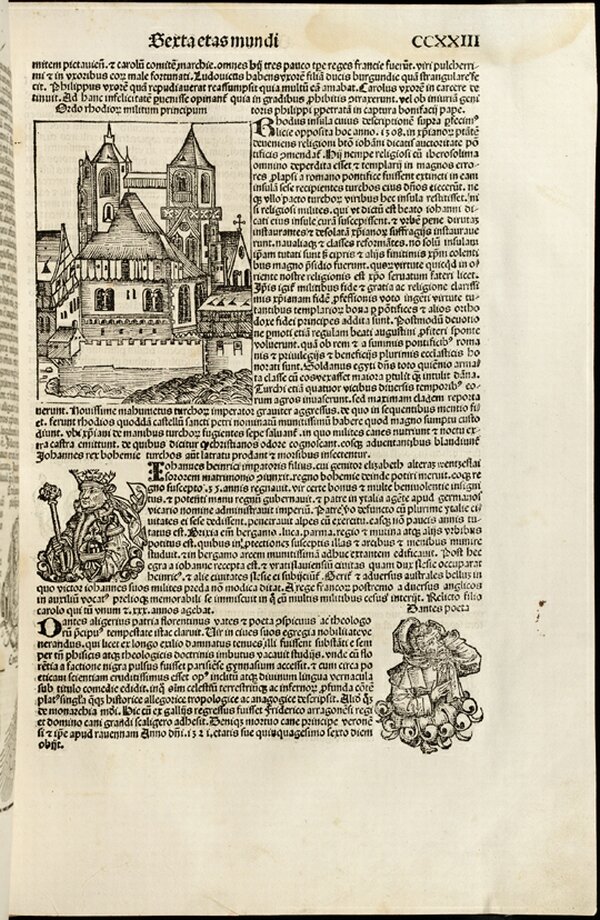 Sexta etas mundi
CCXXIII
mitem pictauieñ. ⁊ carolū comitē marchie. omnes hij tres pauco tpe reges francie fuerūt. viri pulcherri-
mi ⁊ in vxoribus eoꝝ male fortunati. Ludouicus habens vxorē filiā ducis burgundie quā strangulare fe-
cit. Philippus vxorē quā repudiauerat reassumpsit quia multū eā amabat. Carolus vxorē in carcere de
tinuit. Ad hanc infelicitatē ꝑuenisse opinant᷑ quia in gradibus ꝓhibitis ꝯtraxerunt. vel ob iniuriā geni
Ordo rhodioꝝ militum principium
toris philippi ꝑpetratā in captura bonifacij pape.
Rhodus insula cuius descriptionē supra
licie opposita hoc anno .1308. in xpianoꝝ ptātē
deueniens religioni btō iohāni dicatis auctoritate pō
tificis ꝯmendat᷑. Hij nempe religiosi cū iherosolima
omnino deperdita esset ⁊ templarij in magnos erro-
res ꝓlapsi a romano pontifice fuissent extincti in eam
insulā sese recipientes turchos eius dños eiecerūt. ne
qꝫ vllo pacto turchoꝝ viribus hec insula restitisset. ni
si religiosi milites. qui vt dictū est beato iohanni di-
cati eius insule curā suscepissent. ⁊ vrbē pene dirutā
instaurantes ⁊ desolatā xpianoꝝ suffragijs instauraue
runt. naualiaqꝫ ⁊ classes reformātes. nō solū insulam
ipsam tutati sunt sꝫ cipris ⁊ alijs finitimis xpm colenti
bus magno psidio fuerunt. quoꝝ virtute quicqd in o-
riente nostre religionis est xpo seruatum fateri licet.
Ipsis igit᷑ militibus fide ⁊ gratia ac religione clarissi
mis xpianam fidē ꝓfessionis voto ingeti virtute tu-
tantibus templarioꝝ bona ꝑ pontifices ⁊ alios ortho
doxe fidei principes addita sunt. Postmodū deuotio
ne ꝑmoti etiā regulam beati augustini ꝓfiteri sponte
voluerunt. quā ob rem ⁊ a summis pontificibꝰ roma
nis ⁊ priuilegijs ⁊ beneficijs plurimis ecclasticis ho
norati sunt. Soldanus egyti dñs toto quiēnio arma
ta classe cū eos vexasset maiora ꝑtulit qꝫ intulit dāna.
Turchi etiā quatuor vicibus diuersis temporibꝰ eo-
rum agros inuaserunt. sed maximam cladem reporta
uerunt. Nouissime mahumetus turchoꝝ imperator grauiter aggressus. de quo in sequentibus mentio fi-
et. ferunt rhodios quoddā castellū sancti petri nominatū munitissimū habere quod magno sumptu custo
diunt. vbi xpiani de manibus turchoꝝ fugientes sepe saluant᷑. in quo milites canes nutriunt ⁊ noctu ex-
tra castra emittunt. de quibus dicitur qꝫ christianos odore cognoscant. eosqꝫ aduentantibus blandiunt᷑
Johannes rex bohemie
turchos aūt latratu produnt ⁊ morsibus insectentur.
Iohannes heinrici imperatoris filius. cui genitor elizabeth alterā wentzeslai
sororem matrimonio ꝯiunxit. regno bohemie deinde potiri meruit. eoqꝫ re
gno suscepto .35. annis regnauit. vir certe bonus ⁊ multe beniuolentie insigni
tus. ⁊ potenti manu regnū gubernauit. ⁊ patre in ytalia agēte apud germanos
vicario nomine administrauit imperiū. Patre ꝟo defuncto cū plurime ytalie ci
uitates ei sese dedissent. penetrauit alpes cū exercitu. easqꝫ nō paucis annis tu-
tatus est. Brixia em̄ bergamo. luca. parma. regio ⁊ mutina atqꝫ alijs vrbibus
potitus est. quibus in ꝓtectiones susceptis illas ⁊ arcibus ⁊ menibus munire
studuit. ⁊ in bergamo arcem munitissimā adhuc extantem edificauit. Post hec
egra a iohanne recepta est. ⁊ vratislauiensiū ciuitas quam dux slesie occuparat
heinricꝰ. ⁊ alie ciuitates slesie ei subijciunt᷑. Gerit᷑ ⁊ aduersus australes bellus in
quo victor iohannes suos milites preda nō modica ditat. A rege francoꝝ postremo a diuersus anglicos
in auxiliū vocatꝰ. prelioqꝫ memorabili se immiscuit in q̊ cū multis militibus cesus interijt. Relicto filio
carolo qui tū vnum ⁊ .xxx. annos agebat.
Dantes poeta
Dantes aligerius patria florentinus vates ⁊ poeta ꝯspicuus ac theologo
rū pcipuꝰ tempestate ista claruit. Uir in ciues suos egregia nobilitate ve
nerandus. qui licet ex longo exilio damnatus tenues illi fuissent substātie. sem
per tn̄ phisicis atqꝫ theologicis doctrinis imbutus vacauit studijs. vnde cū flo
rētia a factione nigra pulsus fuisset parisiēse gymnasium accessit. ⁊ cum circa po
eticam scientiam eruditissimus esset opꝰ inclitū atqꝫ diuinum lingua vernacula
sub titulo comedie edidit. in q̊ oīm celestiū terrestriūqꝫ ac infernoꝝ ꝓfunda cōtē
platꝰ singla q̊qꝫ historice allegorice tropologice ac anagogice descripsit. Aliō qꝫ
de monarchia mōi. Hic cū ex gallijs regressus fuisset friderico arragonēsi regi
et domino cani grandi scaligero adhesit. Deniqꝫ mortuo cane principe veronē
si ⁊ ipe apud rauennam Anno dñi. 1321. etatis sue quinquagesimo sexto diem
obijt.